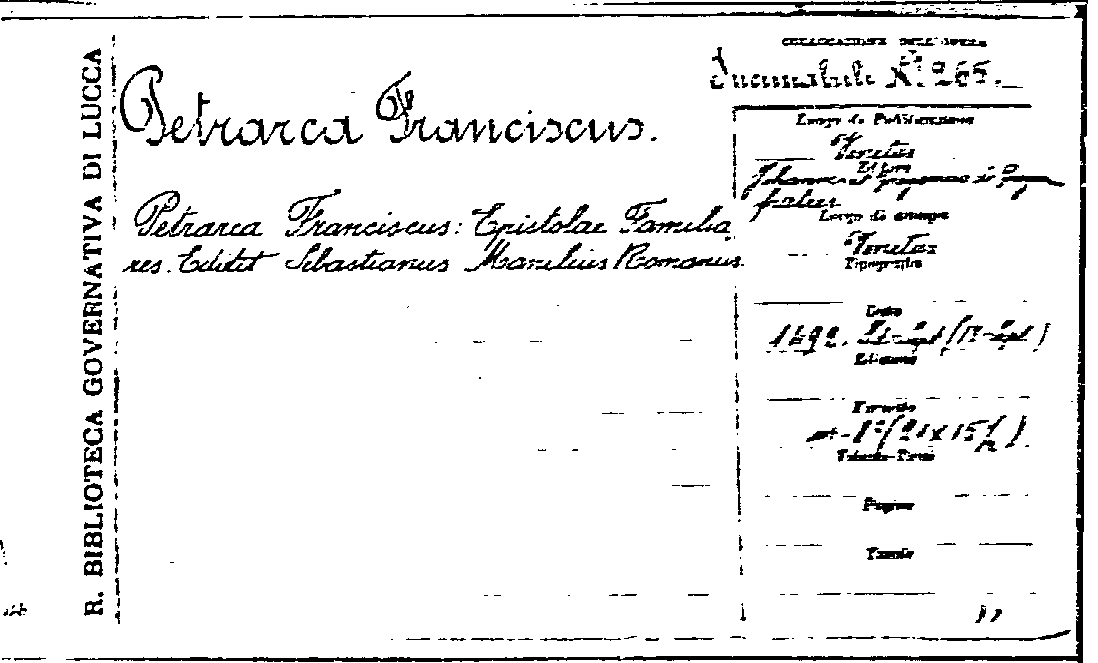 R. BIBLIOTECA GOVERNATIVA DI LUCCA
COLLOCAZIONE DELL'OPERA
Incunabulo N.° 265.
Petrarca Franciscus.
Petrarca Franciscus: Epistolae Familia
res. Editit Sebastianus Manilius Romanus.
Luogo di Pubblicazione
Venetiis
Editore
Johannes et Gregorius de
fratres
Luogo di stampa
Venetiis
Tipografia
Data
1492.
Edizione
Formato
(21x15
Volume-Tomi
Pagine
Tavole